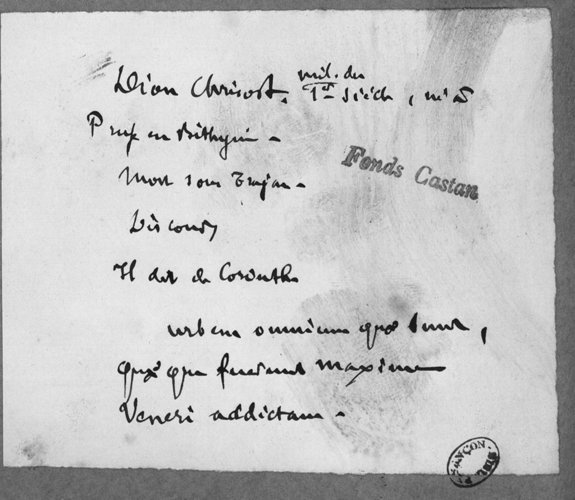 Dion Chrisost. mil. du 1er siècle, né à
Pruse en Bithynie -
Mort sous Trajan -
Discours
Il dit de Corinthe
urbem omnium quæ sunt,
quæque fuerunt maxime
Veneri addictam -
Fonds Castan